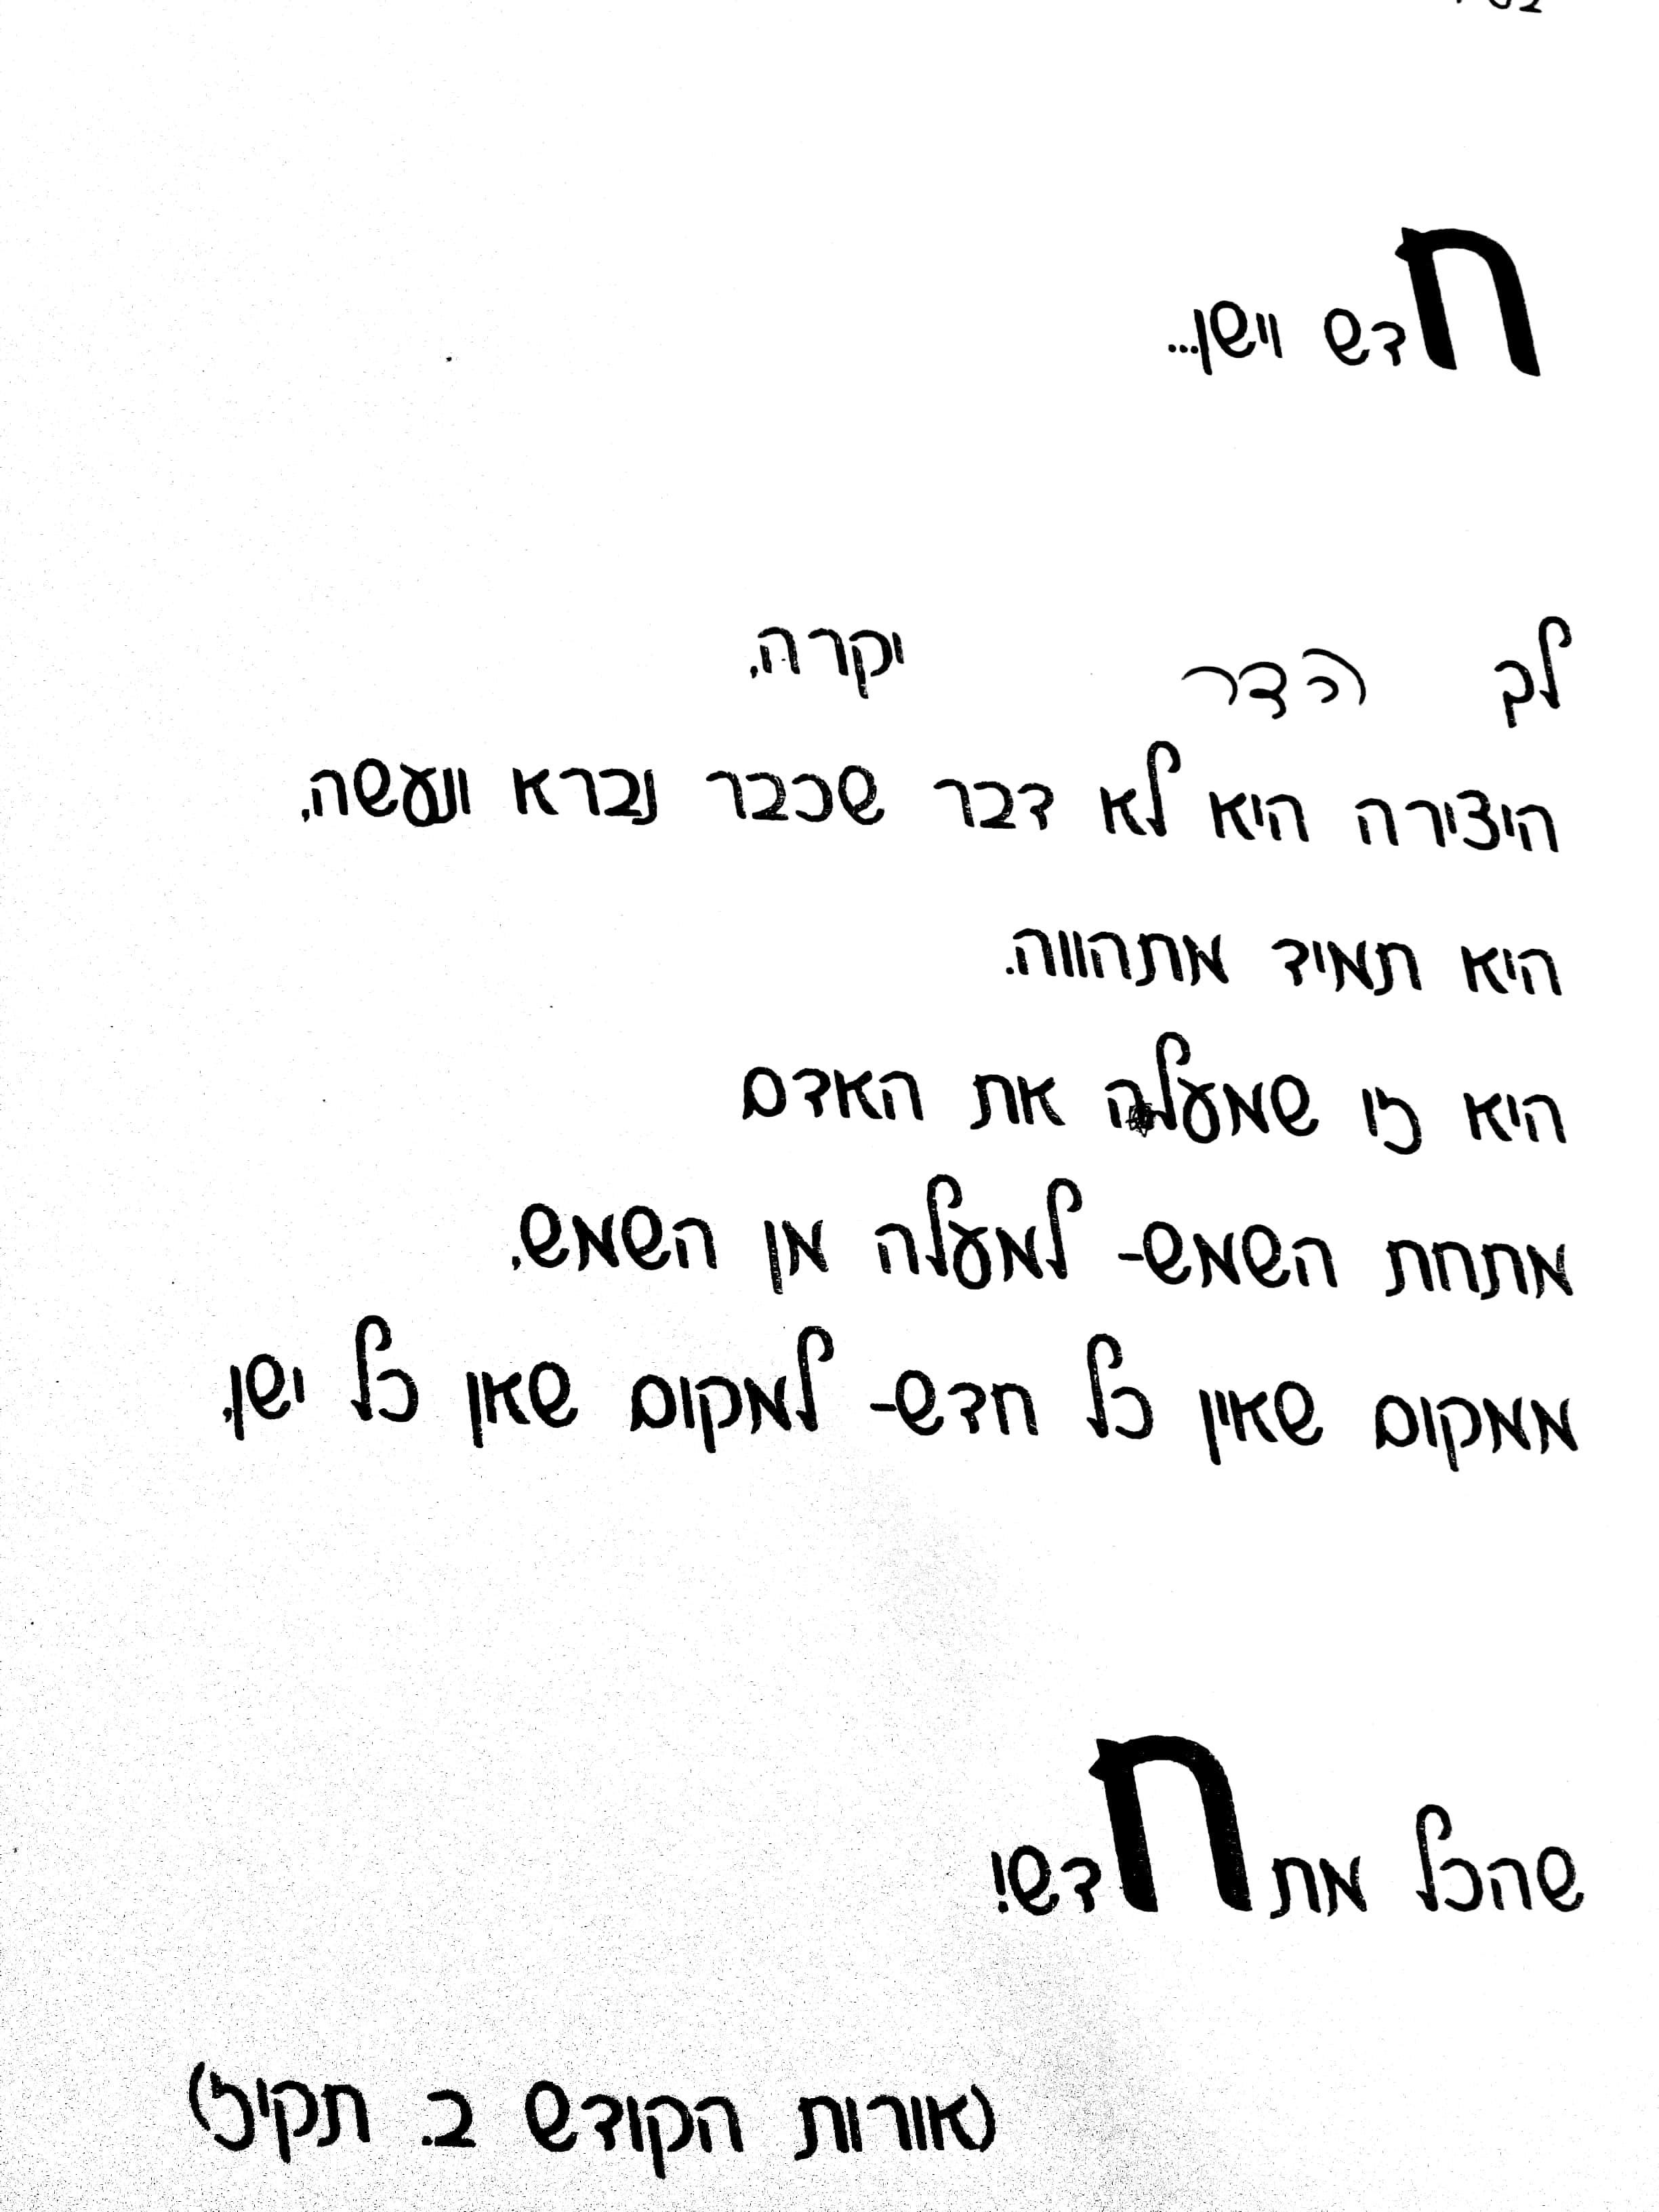 חדש וישן...
לך הדר יקרה,
היצירה היא לא דבר שכבר נברא ונעשה,
היא תמיד מתהווה.
היא זו שמעלה את האדם
מתחת השמש- למעלה מן השמש,
ממקום שאין כל חדש- למקום שאין כל ישן,
שהכל מתחדש!
(אורות הקודש ב. תקיז)